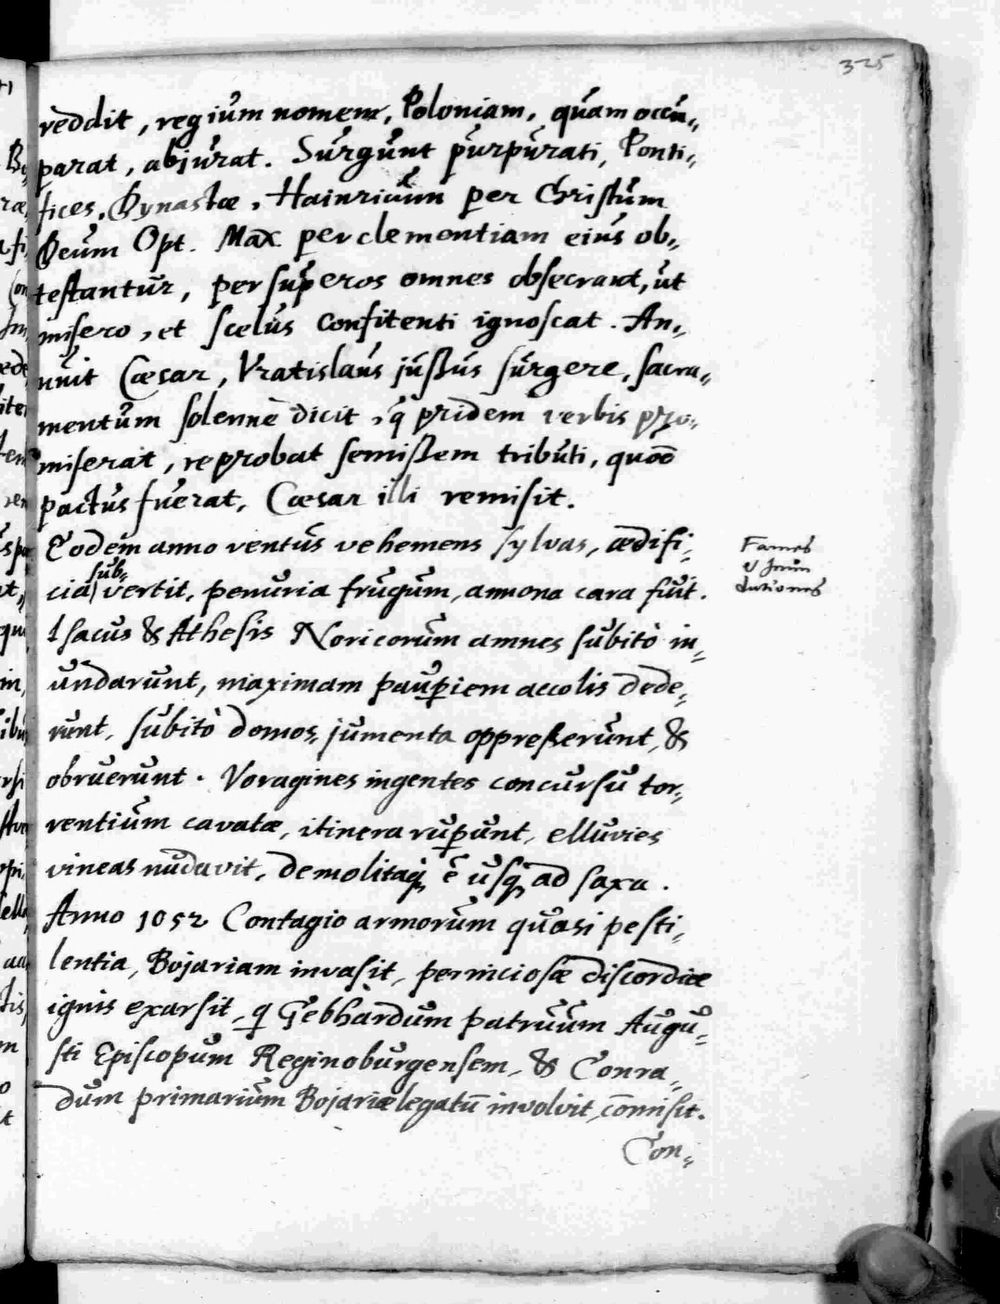 325
reddit, regium nomem, Poloniam, quam occu„
parat, abjurat. Surgunt purpurati, Ponti„
fices, Dynastæ, Hainricum per Christum
Deum Opt. Max. per clementiam eius ob„
testantur, per superos omnes obsecrant, ut
misero, et scelus confitenti ignoscat. An„
nuit Cæsar, Vratislaus jussus surgere, sacra„
mentum solenne dicit, q̃ pridem verbis pro„
miserat, reprobat semissem tributi, quod
pactus fuerat, Cæsar illi remisit.
Eodem anno ventus vehemens sylvas, ædifi„
cia subvertit, penuria frugum, annona cara fuit.
Fames
& Inun
dationes
Isacus & Athesis Noricorum amnes subitò in„
undarunt, maximam pauperiem accolis dede„
runt, subitò domos, jumenta oppresserunt, &
obruerunt. Voragines ingentes concursu tor„
rentium cavatæ, itinera rupunt, elluvies
vineas nudavit, demolitaq̃ ẽ usq̃ ad saxa.
Anno 1052 Contagio armorum quasi pesti„
lentia, Bojariam invasit, perniciosæ discordiæ
ignis exarsit, q Gebhardum patruum Augu„
sti Episcopum Reginoburgensem, & Conra„
dum primarium Bojariæ legatū involvit, com̄isit.
Con„